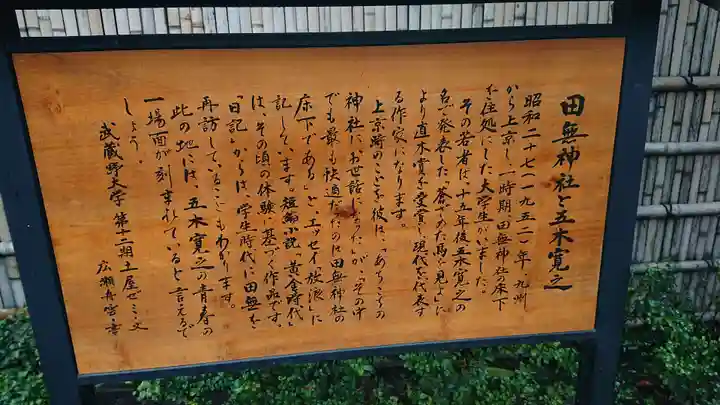 田無神社と五木寛之
昭和二十七(一九五二)年、九州
から上京し、一時期、田無神社の床下
を住処にした大学生がいました。
その若者は、十五年後五木寛之の
名で発表した「蒼ざめた馬を見よ」に
より直木賞を受賞し、現代を代表す
る作家になります。
上京時のことを彼は、「あちこちの
神社にお世話になったが、その中
でも最も快適だったのは田無神社の
床下である」と『エッセイ放浪』に
記しています。短編小説『黄金時代』
は、その頃の体験に基づく作品です。
『日記』からは、学生時代に田無を
再訪していることもわかります。
此の地には、五木寛之の青春の
一場面が刻まれていると言えるで
しょう。
武蔵野大学 第十二期土屋ゼミ・文
広瀬舟雲・書